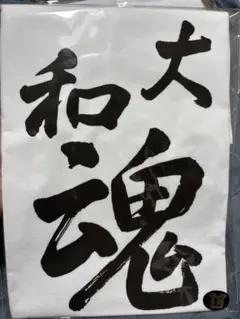 大和魂